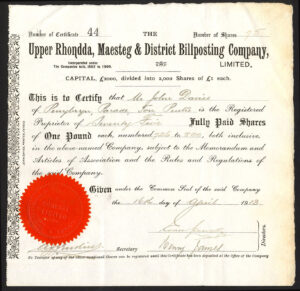 Number of Certificate 44 THE Number of Shares 75
Upper Rhondda, Maesteg & District Billposting Company,
Incorporated under
The Companies Acts, 1862 to 1900.
LIMITED.
CAPITAL, £2000, divided into 2,000 Shares of £1 each.
This is to Certify that Mr John Davies
of Pentre is the Registered
Proprietor of Seventy Five Fully Paid Shares
of One Pound each, numbered to both inclusive,
in the above-named Company, subject to the Memorandum and
Articles of Association and the Rules and Regulations of
the said Company.
Given under the Common Seal of the said Company
the 16th day of April 1913
Secretary
Henry James
Directors.
No Transfer of the above-mentioned Shares can be registered until this Certificate has been deposited at the Office of the Company